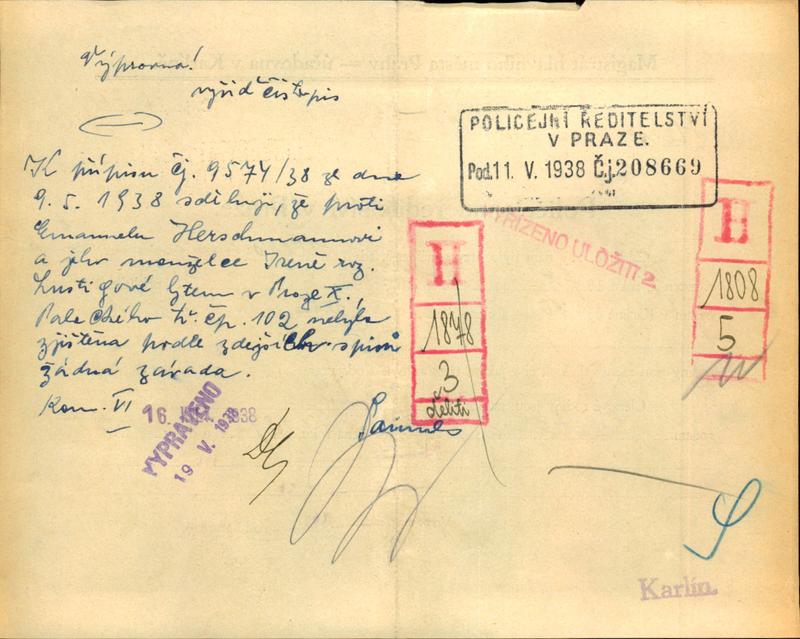 Výpravna!
vyřiď čistopis
K přípisu čj. 9574/38 ze dne
9. 5. 1938 sděluji, že proti
Emanuelu Herschmannovi
a jeho manželce Ireně roz.
Lustigové bytem v Praze X,
Palackého tř. čp. 102 nebyla
zjištěna podle zdejších spisů
žádná závada.
Kom. VI
16. 1938
VYPRAVENO
19 V. 1938
POLICEJNÍ ŘEDITELSTVÍ
V PRAZE.
Pod. 11. V. 1938 Č.j. 208669
VYŘÍZENO ULOŽITI 2.
H
1878
3
děliti
H
1808
5
Karlín.